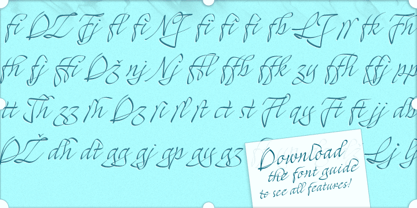 fi DZ Fj fl fi NJ fi fi fi fb LJ rr fk Fh
th fj ffi Dž nj Nj ffl ffb ffk zy ffh ffj pp
tt Th zz rh Dz ri rl rt ct st Fl ay Ft ft jj db
DŽ dh dt gg gj gp gy gg Lj lj
Download
the font guide
to see all features!